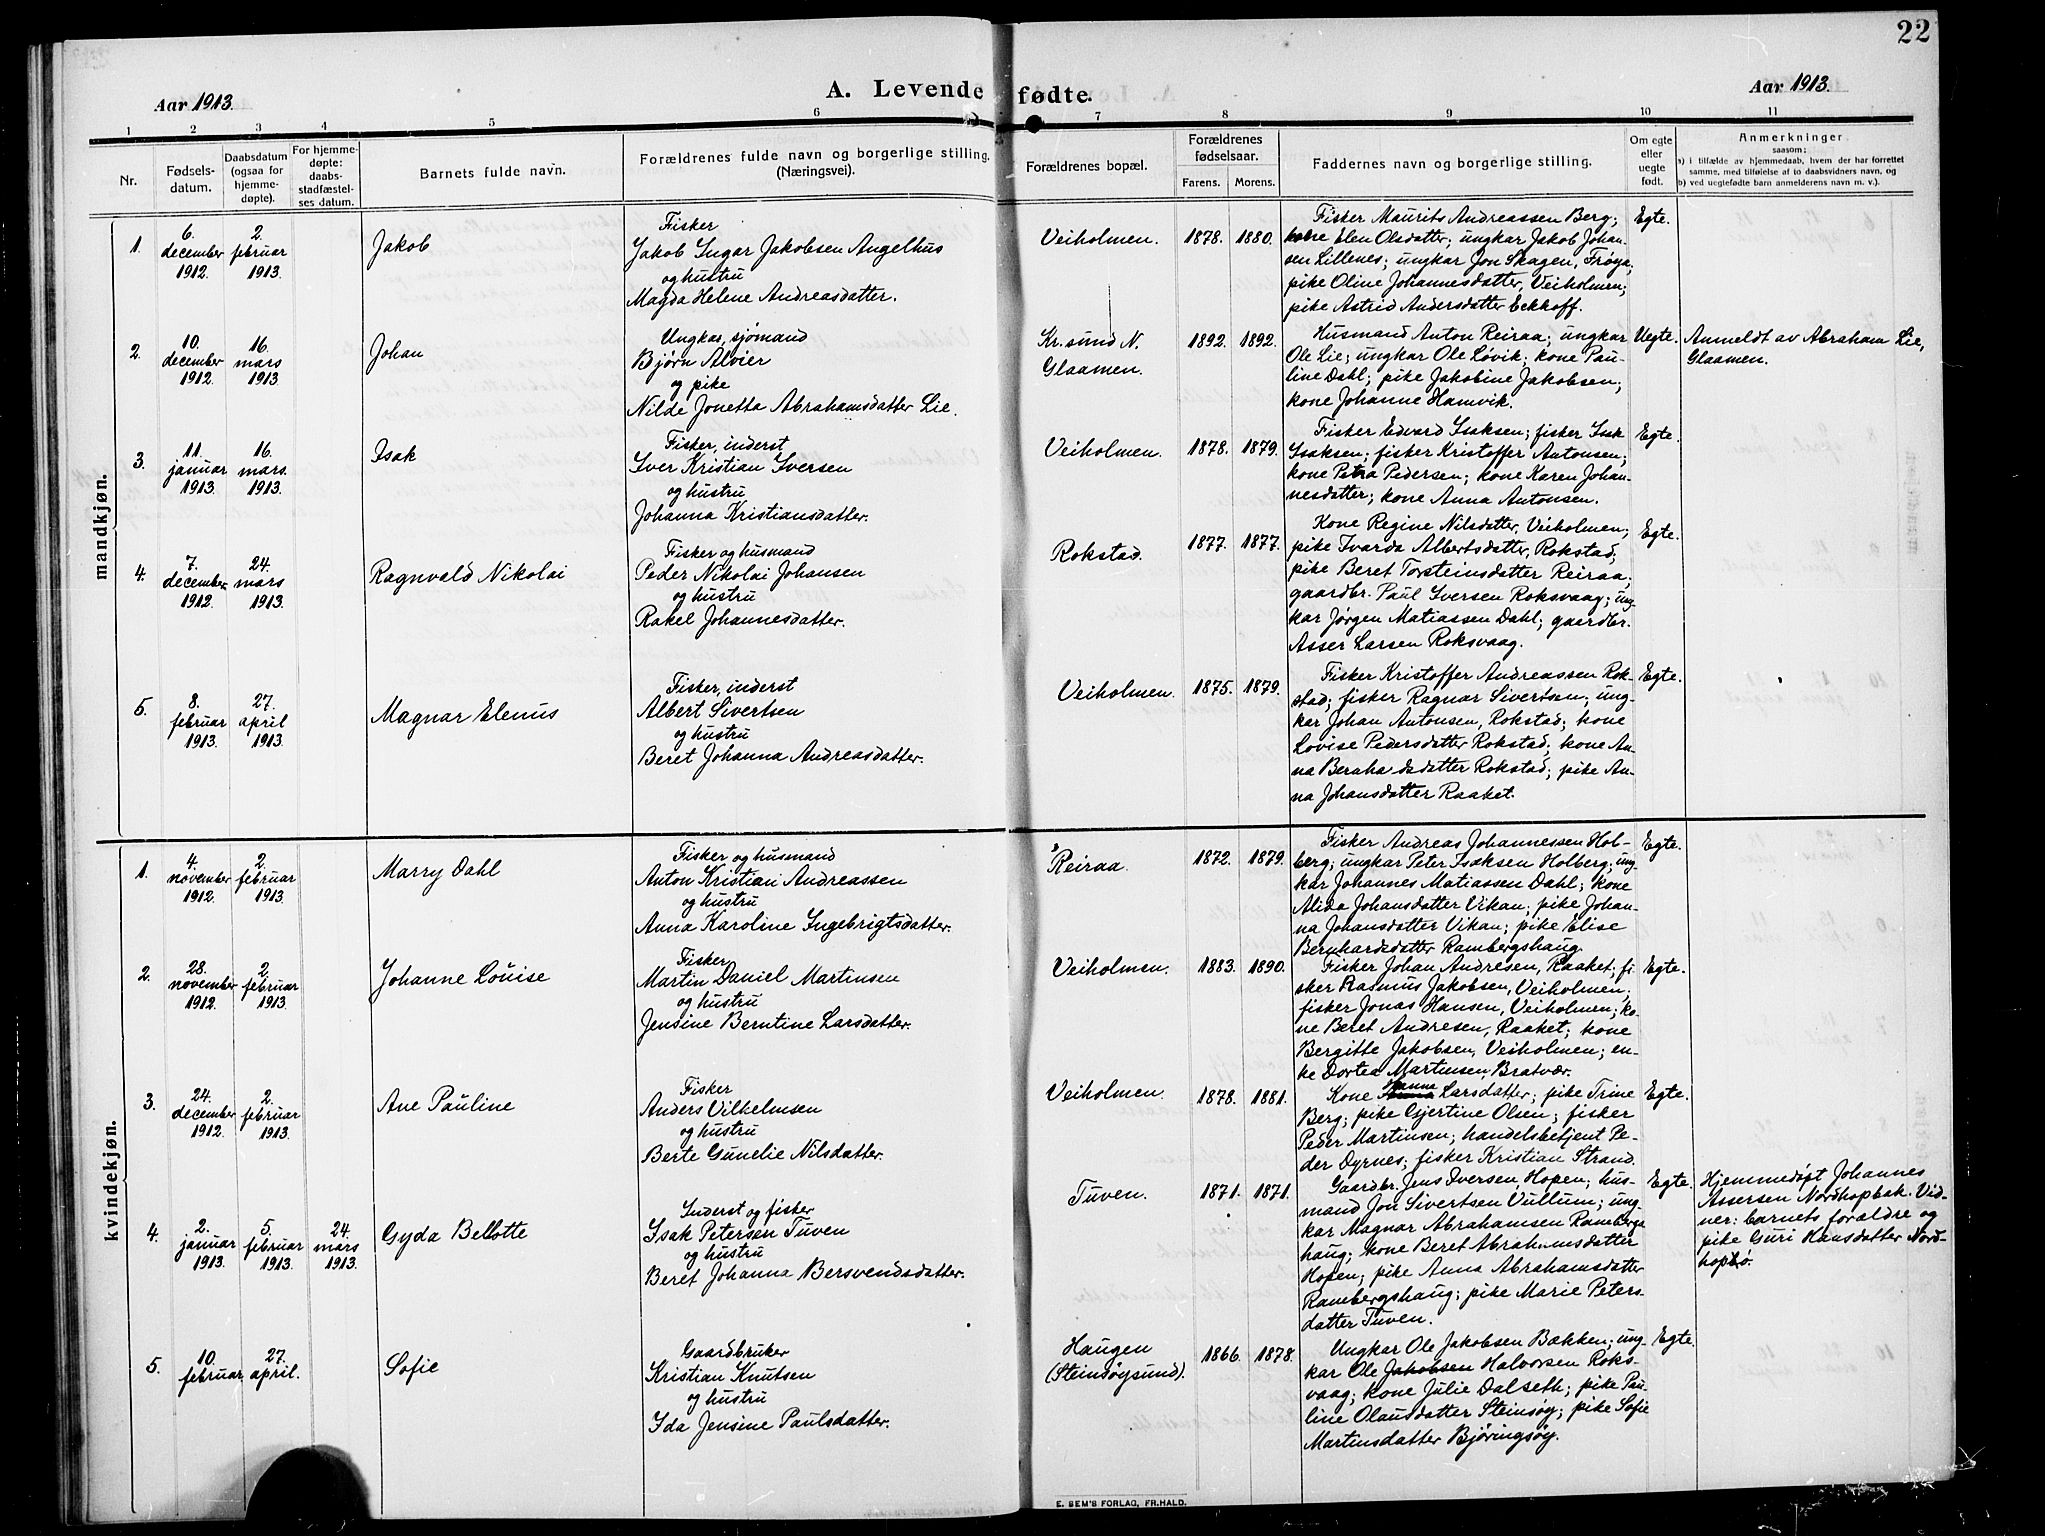 22
Aar 1913.
A. Levende fødte.
Aar 1913.
1 2 3 4 5 6 7 8 9 10 11
Nr.
Fødsels-
datum.
Daabsdatum
(ogsaa for
hjemme-
døpte).
For hjemme-
døpte:
daabs-
stadfæstel-
ses datum.
Barnets fulde navn.
Forældrenes fulde navn og borgerlige stilling.
(Næringsvei).
Forældrenes bopæl.
Forældrenes
fødselsaar.
Farens. Morens.
Faddernes navn og borgerlige stilling.
Om egte
eller
uegte
født.
Anmerkninger
saasom:
a) i tilfælde av hjemmedaab, hvem der har forrettet
samme, med tilføielse af to daabsvidners navn, og
b) ved uegtefødte barn anmelderens navn m. v.).
mandkjøn.
1.
6.
december
1912
2.
februar
1913.
Jakob
Fisker
Jakob Ingar Jakobsen Angelhus
og hustru
Magda Helene Andreasdatter.
Veiholmen.
1878. 1880.
Fisker Maurits Andreassen Berg;
kone Elen Olsdatter; ungkar Jakob Johan-
sen Lillenes; ungkar Jon Skagen, Frøya;
pike Oline Johannesdatter, Veiholmen;
pike Astrid Andersdatter Eckhoff.
Egte.
2.
10.
december
1912.
16.
mars
1913.
Johan
Ungkar, sjømand
Bjørn Alvier
og pike
Nilde Jonetta Abrahamsdatter Lie.
Kr.sund N.
Glaamen.
1892. 1892.
Husmand Anton Reiraa; ungkar
Ole Lie; ungkar Ole Løvik; kone Pau-
line Dahl; pike Jakobine Jakobsen;
kone Johanne Hamvik.
Uegte.
Anmeldt av Abraham Lie,
Glaamen.
3.
11.
januar
1913.
16.
mars.
1913.
Isak
Fisker, inderst
Iver Kristian Iversen
og hustru
Johanna Kristiansdatter.
Veiholmen.
1878. 1879.
Fisker Edvard Isaksen; fisker Isak
Isaksen; fisker Kristoffer Antonsen;
kone Petra Pedersen; kone Karen Johan-
nesdatter; kone Anna Antonsen.
Egte.
4.
7.
december
1912.
24.
mars
1913.
Ragnvald Nikolai
Fisker og husmand
Peder Nikolai Johansen
og hustru
Rakel Johannesdatter.
Rokstad.
1877. 1877.
Kone Regine Nilsdatter, Veiholmen;
pike Ivarda Albertsdatter, Rokstad;
pike Beret Torsteinsdatter Reiraa;
gaardbr. Paul Iversen Roksvaag; ung-
kar Jørgen Matiassen Dahl; gaardbr.
Asser Larsen Roksvaag.
Egte.
5.
8.
februar
1913.
27.
april
1913.
Magnar Elenus
Fisker, inderst
Albert Sivertsen
og hustru
Beret Johanna Andreasdatter.
Veiholmen.
1875. 1879.
Fisker Kristoffer Andreassen Rok-
stad; fisker Ragnar Sivertsen; ung-
kar Johan Antonsen, Rokstad; kone
Lovise Pedersdatter Rokstad; kone An-
na Berahadsdatter Rokstad; pike An-
na Johansdatter Raaket.
Egte.
kvindekjøn.
1.
4.
november
1912.
2.
februar
1913.
Marry Dahl
Fisker og husmand
Anton Kristian Andreassen
og hustru
Anna Karoline Ingebrigtsdatter.
Reiraa.
1872. 1879.
Fisker Andreas Johannessen Hol-
berg; ungkar Peter Isaksen Holberg; ung-
kar Johannes Matiassen Dahl; kone
Alida Johansdatter Vikan; pike Johan-
na Johansdatter Vikan; pike Elise
Bernhardsdatter Rambergshaug
Egte.
2.
28.
november
1912.
2.
februar
1913.
Johanne Louise
Fisker,
Martin Daniel Martinsen
og hustru
Jensine Berntine Larsdatter.
Veiholmen.
1883. 1890.
Fisker Johan Andresen, Raaket; fi-
sker Rasmus Jakobsen, Veiholmen;
fisker Jonas Hansen, Veiholmen; ko-
ne Beret Andresen, Raaket; kone
Bergitte Jakobsen, Veiholmen; en-
ke Dortea Martinsen, Bratvær.
Egte.
3.
24.
december
1912.
2.
februar
1913.
Ane Pauline
Fisker
Anders Vilhelmsen
og hustru
Berte Gunelie Nilsdatter.
Veiholmen.
1878. 1881.
Kone Hanna Larsdatter; pike Trine
Berg; pike Gjertine Olsen; fisker
Peder Martinsen; handelsbetjent Pe-
der Dyrnes; fisker Kristian Strand.
Egte.
4.
2.
januar
1913.
5.
februar
1913.
24.
mars
1913.
Gyda Bellotte
Inderst og fisker
Isak Petersen Tuven
og hustru
Beret Johanna Bersvendsdatter.
Tuven.
1871. 1871.
Gaardbr. Jens Iversen, Hopen; hus-
mand Jon Sivertsen Vullum; ung-
kar Magnar Abrahamsen Rambergs-
haug; kone Beret Abrahamsdatter
Hopen; pike Anna Abrahamsdatter
Rambergshaug; pike Marie Peters-
datter Tuven.
Egte.
Hjemmedøpt Johannes
Assersen Nordhopbak. Vid-
ner: barnets forældre og
pike Guri Hansdatter Nord-
hopbø.
5.
10.
februar
27.
april.
Sofie
Gaardbruker
Kristian Knutsen
og hustru
Ida Jensine Paulsdatter.
Haugen
(Steinsøysund).
1866. 1878.
Ungkar Ole Jakobsen Bækken; ung-
kar Ole Jakobsen Halvorsen Roks-
vaag; kone Julie Dalseth; pike Pau-
line Olausdatter Steinsøy; pike Sofie
Martinsdatter Bjøringsøy.
Egte.
E. SEM'S FORLAG, FR.HALD.